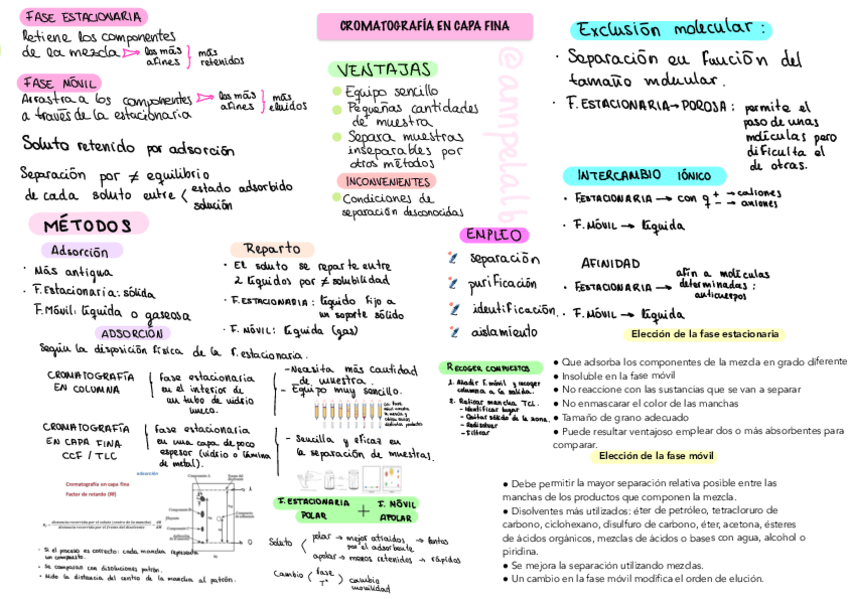 FASE ESTACIONARIA
Retiene los componentes
de la mezcla → los más afines } más retenidos
FASE MÓVIL
Arrastra a los componentes → los más afines } más eluidos
a través de la estacionaria
Soluto retenido por adsorción
Separación por ≠ equilibrio
de cada soluto entre < estado adsorbido
solución
CROMATOGRAFÍA EN CAPA FINA
VENTAJAS
Equipo sencillo
Pequeñas cantidades
de muestra
Separa muestras
inseparables por
otros métodos
INCONVENIENTES
Condiciones de
separación desconocidas
@annpelalb
Exclusión molecular:
· Separación en función del
tamaño molecular.
· F. ESTACIONARIA → POROSA: permite el
paso de unas
moléculas pero
dificulta el
de otras.
INTERCAMBIO IÓNICO
· F.ESTACIONARIA → con q + → cationes
- → aniones
· F. MÓVIL → líquida
AFINIDAD
· F.ESTACIONARIA → afín a moléculas
determinadas:
anticuerpos
· F. MÓVIL → líquida
MÉTODOS
Adsorción
· Más antigua
· F. Estacionaria: sólida
F. Móvil: líquida o gaseosa
Reparto
· El soluto se reparte entre
2 líquidos por ≠ solubilidad
· F. ESTACIONARIA: líquido fijo a
un soporte sólido
· F. MÓVIL: líquida (gas)
EMPLEO
separación
purificación
identificación.
aislamiento
ADSORCIÓN
Según la disposición física de la f. estacionaria.
CROMATOGRAFÍA
EN COLUMNA
fase estacionaria
en el interior de
un tubo de vidrio
hueco.
- Necesita más cantidad
de muestra.
- Equipo muy sencillo.
CROMATOGRAFÍA
EN CAPA FINA
CCF / TLC
fase estacionaria
en una capa de poco
espesor (vidrio o lámina
de metal).
- Sencilla y eficaz en
la separación de muestras.
RECOGER COMPUESTOS
1. Añadir f. móvil y recoger
columna a la salida.
2. Retirar mancha TLC.
- Identificar lugar
- Quitar sólido de la zona.
- Redisolver
- Filtrar
Elección de la fase estacionaria
● Que adsorba los componentes de la mezcla en grado diferente
● Insoluble en la fase móvil
● No reaccione con las sustancias que se van a separar
● No enmascarar el color de las manchas
● Tamaño de grano adecuado
● Puede resultar ventajoso emplear dos o más absorbentes para
comparar.
Elección de la fase móvil
● Debe permitir la mayor separación relativa posible entre las
manchas de los productos que componen la mezcla.
● Disolventes más utilizados: éter de petróleo, tetracloruro de
carbono, ciclohexano, disulfuro de carbono, éter, acetona, ésteres
de ácidos orgánicos, mezclas de ácidos o bases con agua, alcohol o
piridina.
● Se mejora la separación utilizando mezclas.
● Un cambio en la fase móvil modifica el orden de elución.
adsorción
Cromatografía en capa fina
Factor de retardo (Rf)
- Si el proceso es correcto: cada mancha representa
un compuesto.
- Se comparan con disoluciones patrón.
- Mido la distancia del centro de la mancha al patrón.
F. ESTACIONARIA POLAR + F. MÓVIL APOLAR
Soluto polar → mejor atraídos → lentos
por el adsorbente
apolar → menos retenidos → rápidos
Cambio ( fase
Tª ) cambio
movilidad